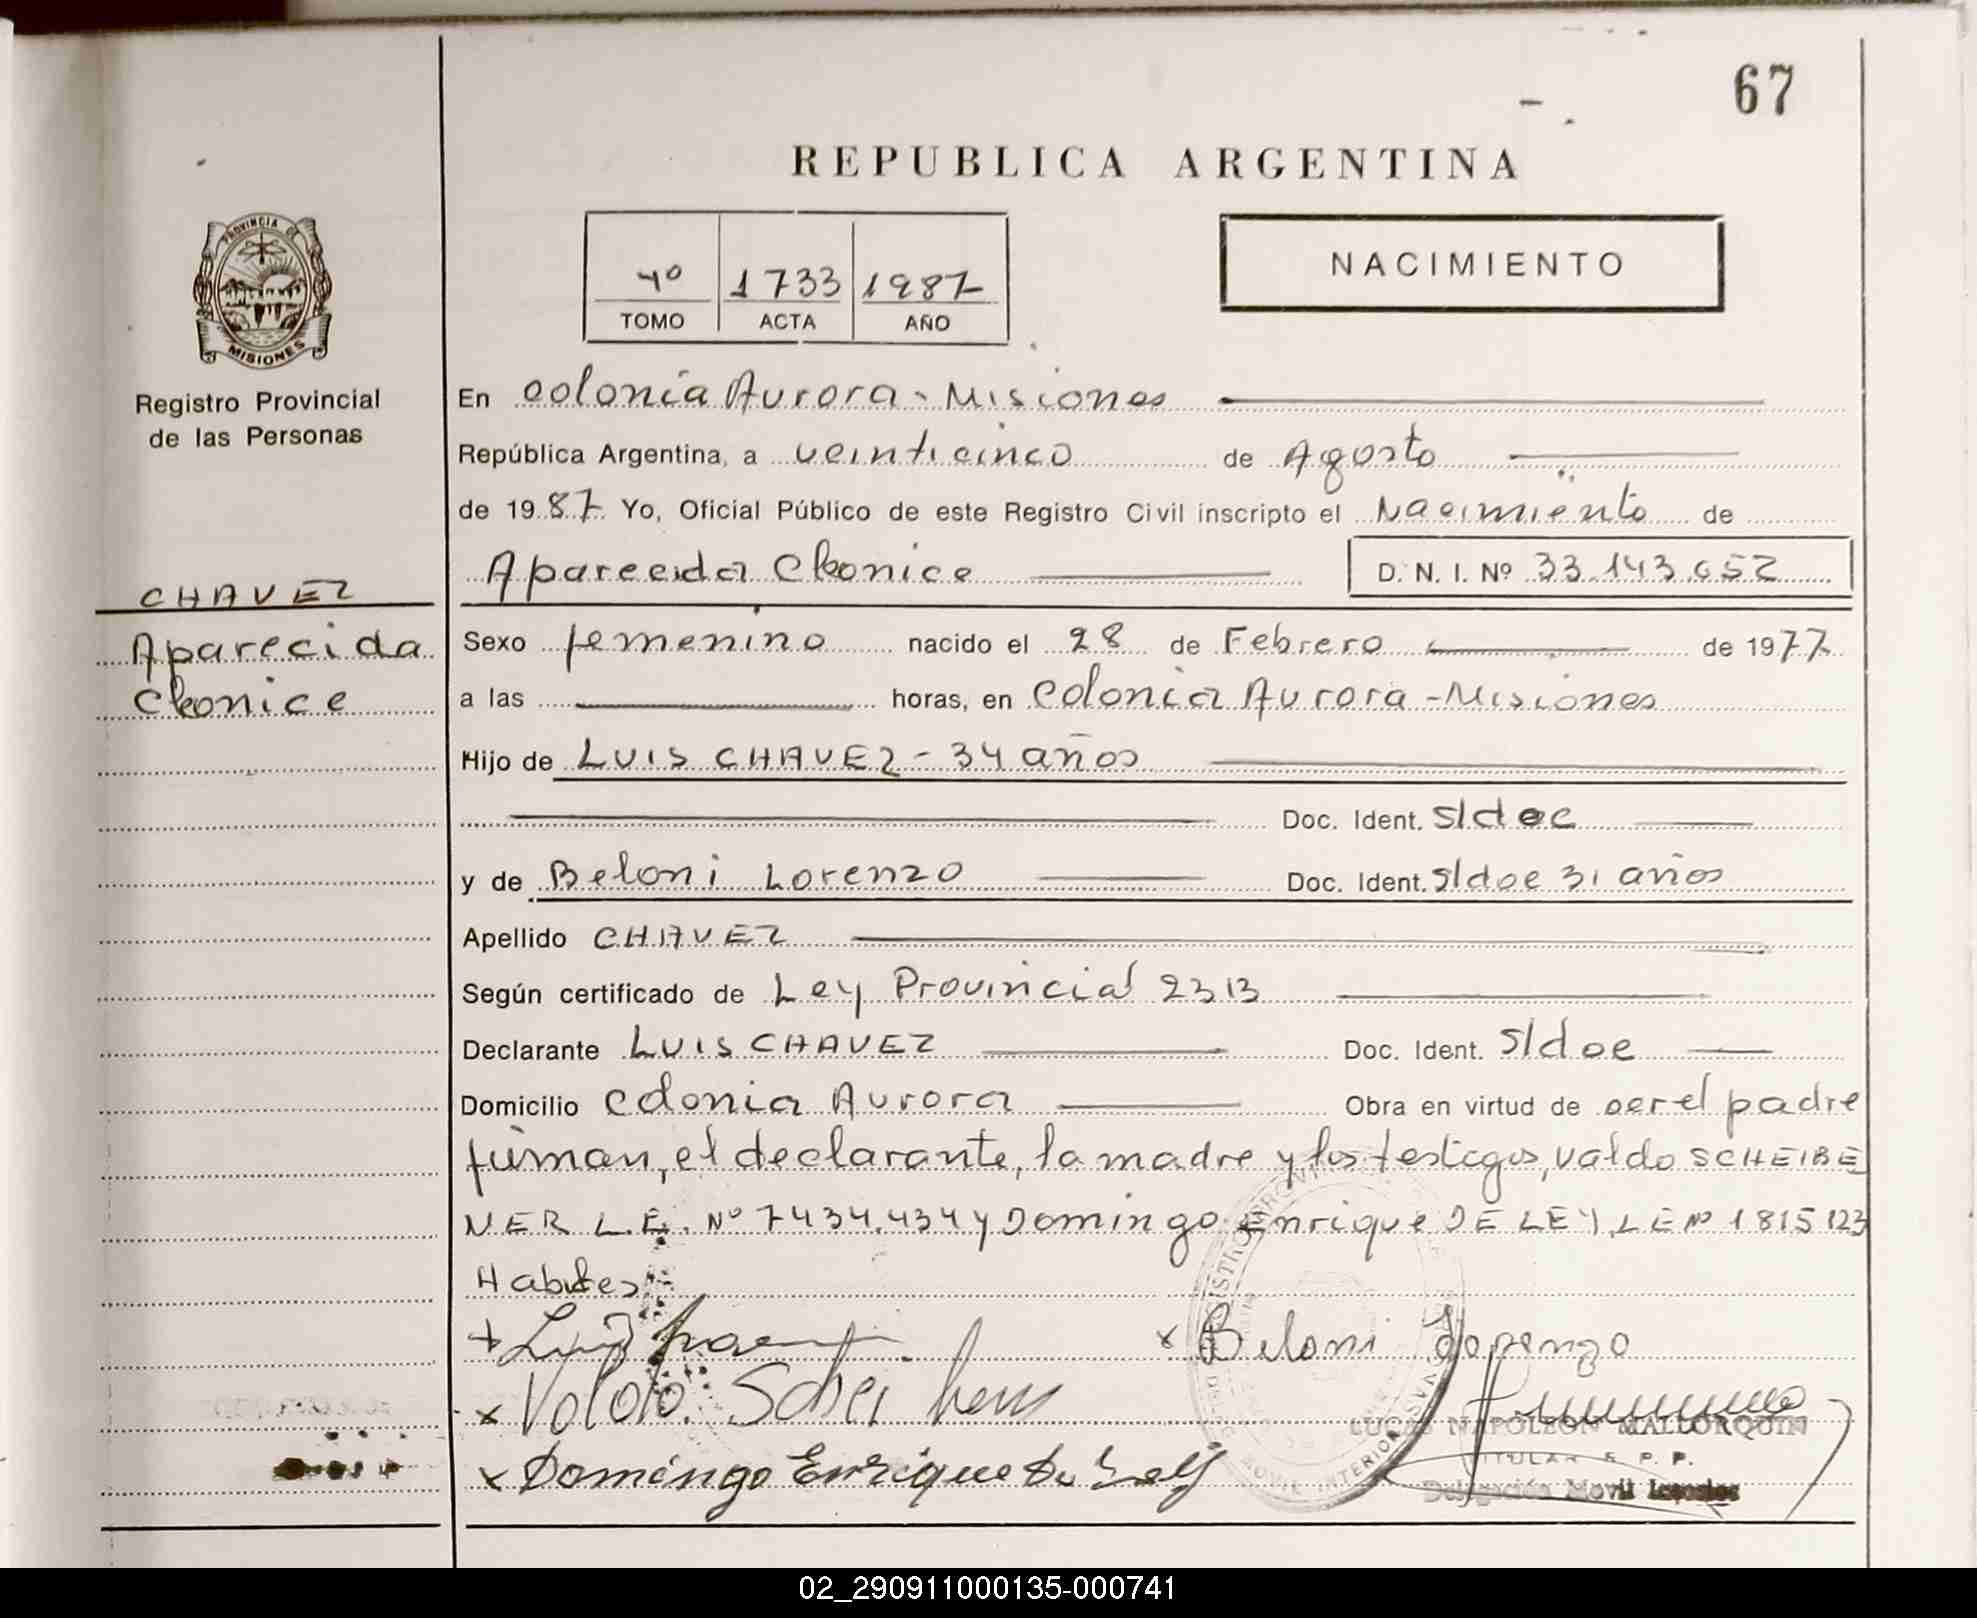 67
REPUBLICA ARGENTINA
PROVINCIA DE
MISIONES
Registro Provincial
de las Personas
4º 1733 1987
TOMO ACTA AÑO
NACIMIENTO
En colonia Aurora - Misiones
República Argentina, a veinticinco de Agosto
de 1987 Yo, Oficial Público de este Registro Civil inscripto el Nacimiento de
Aparecida Cleonice D. N. I. Nº 33.143.652
CHAVEZ
Aparecida
Cleonice
Sexo femenino nacido el 28 de Febrero de 1977
a las horas, en colonia Aurora - Misiones
Hijo de LUIS CHAVEZ - 34 años
Doc. Ident. s/doc
y de Beloni Lorenzo Doc. Ident. s/doc 31 años
Apellido CHAVEZ
Según certificado de Ley Provincial 2313
Declarante LUIS CHAVEZ Doc. Ident. s/doc
Domicilio colonia Aurora Obra en virtud de ser el padre
firman, el declarante, la madre y los testigos, valdo SCHEIBE
NER L.E. Nº 7434.434 y Domingo Enrique DE LEY, LE Nº 1815123
Habiles
+ Luis x Beloni Lorenzo
x Valdo
x Domingo Enrique De Ley
LUCAS NAPOLEON MALLORQUIN
TITULAR R. P. P.
Delegación Movil
02_290911000135-000741